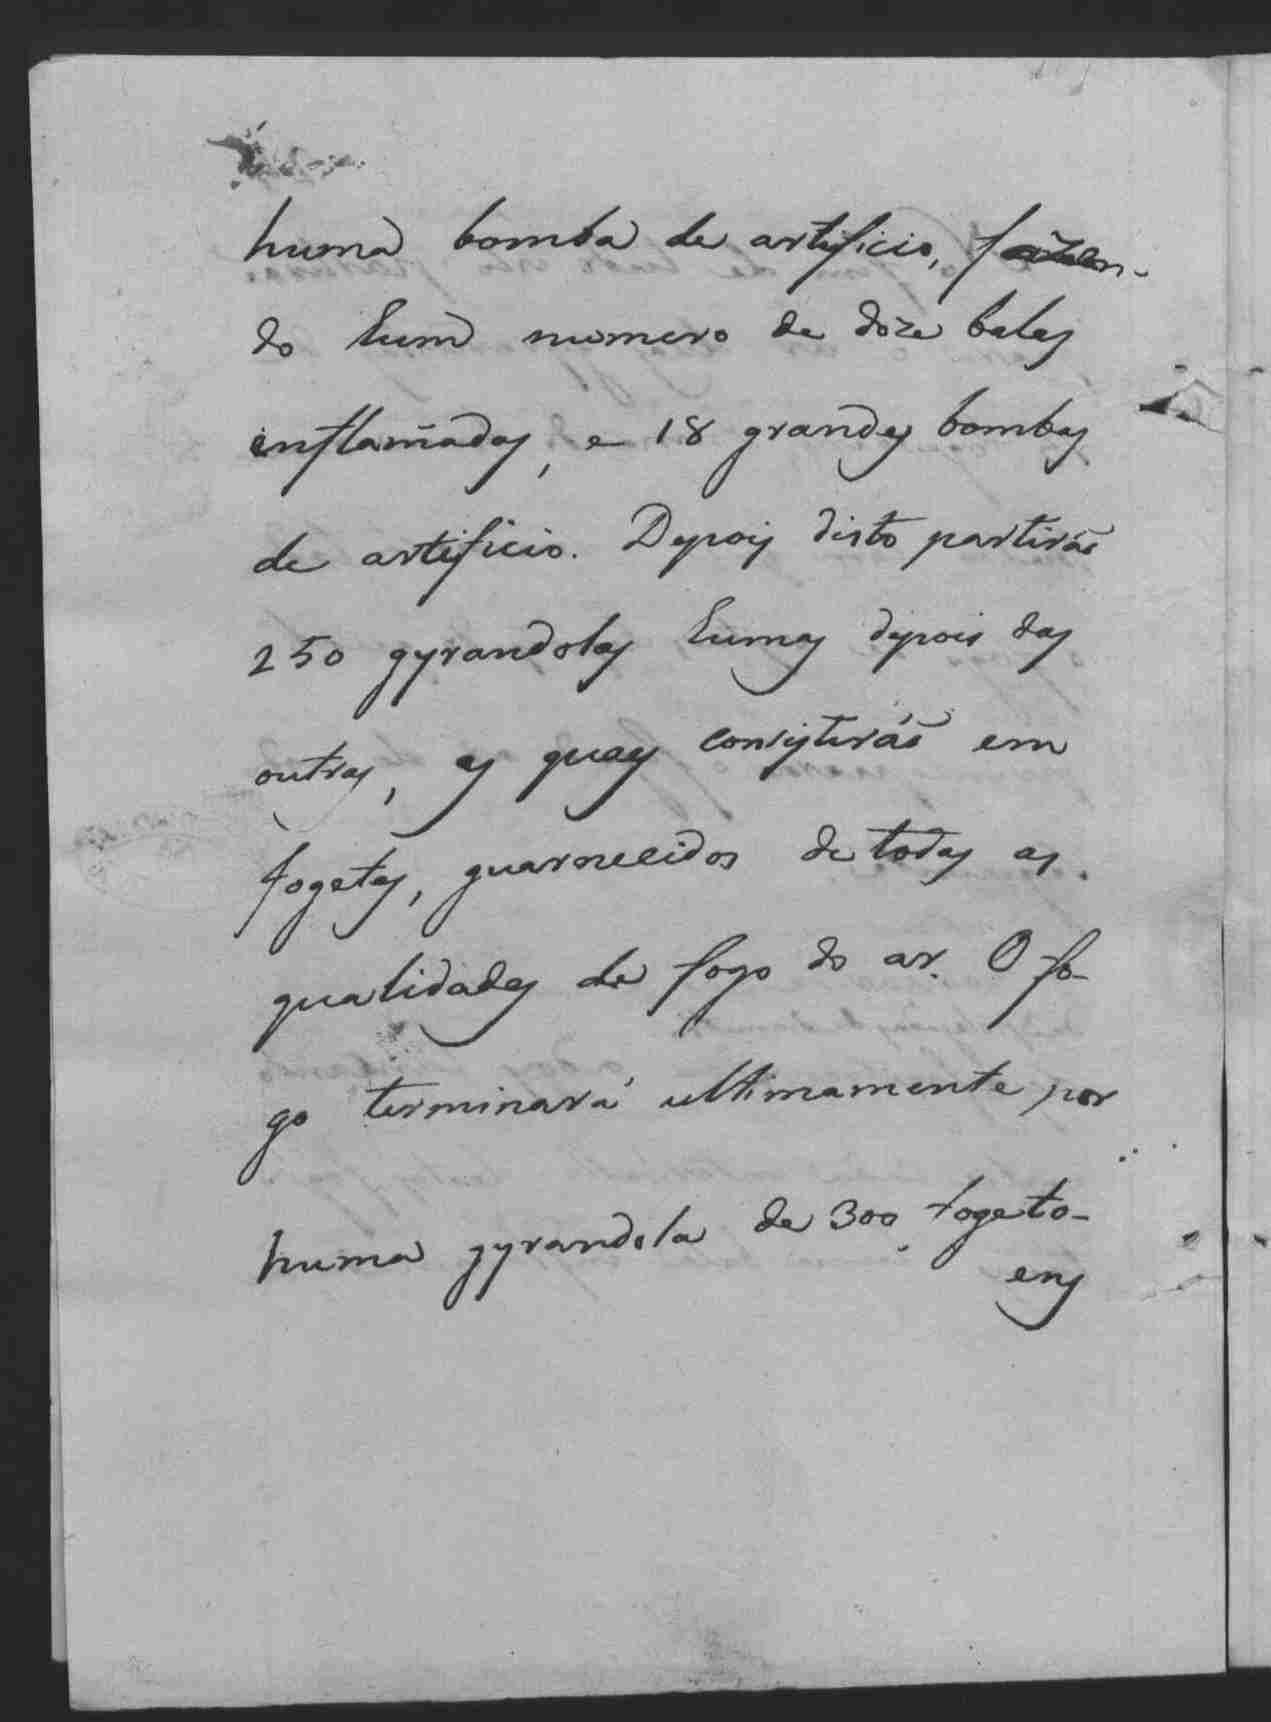 huma bomba de artificio, fazen-
do hum numero de doze balas
inflamadas, e 18 grandes bombas
de artificio. Depois disto partirão
250 gyrandolas humas depois das
outras, as quaes consistirão em
fogetes, guarnecidos de todas as
qualidades de fogo do ar. O fo-
go terminará ultimamente por
huma gyrandola de 300 fogeto-
ens